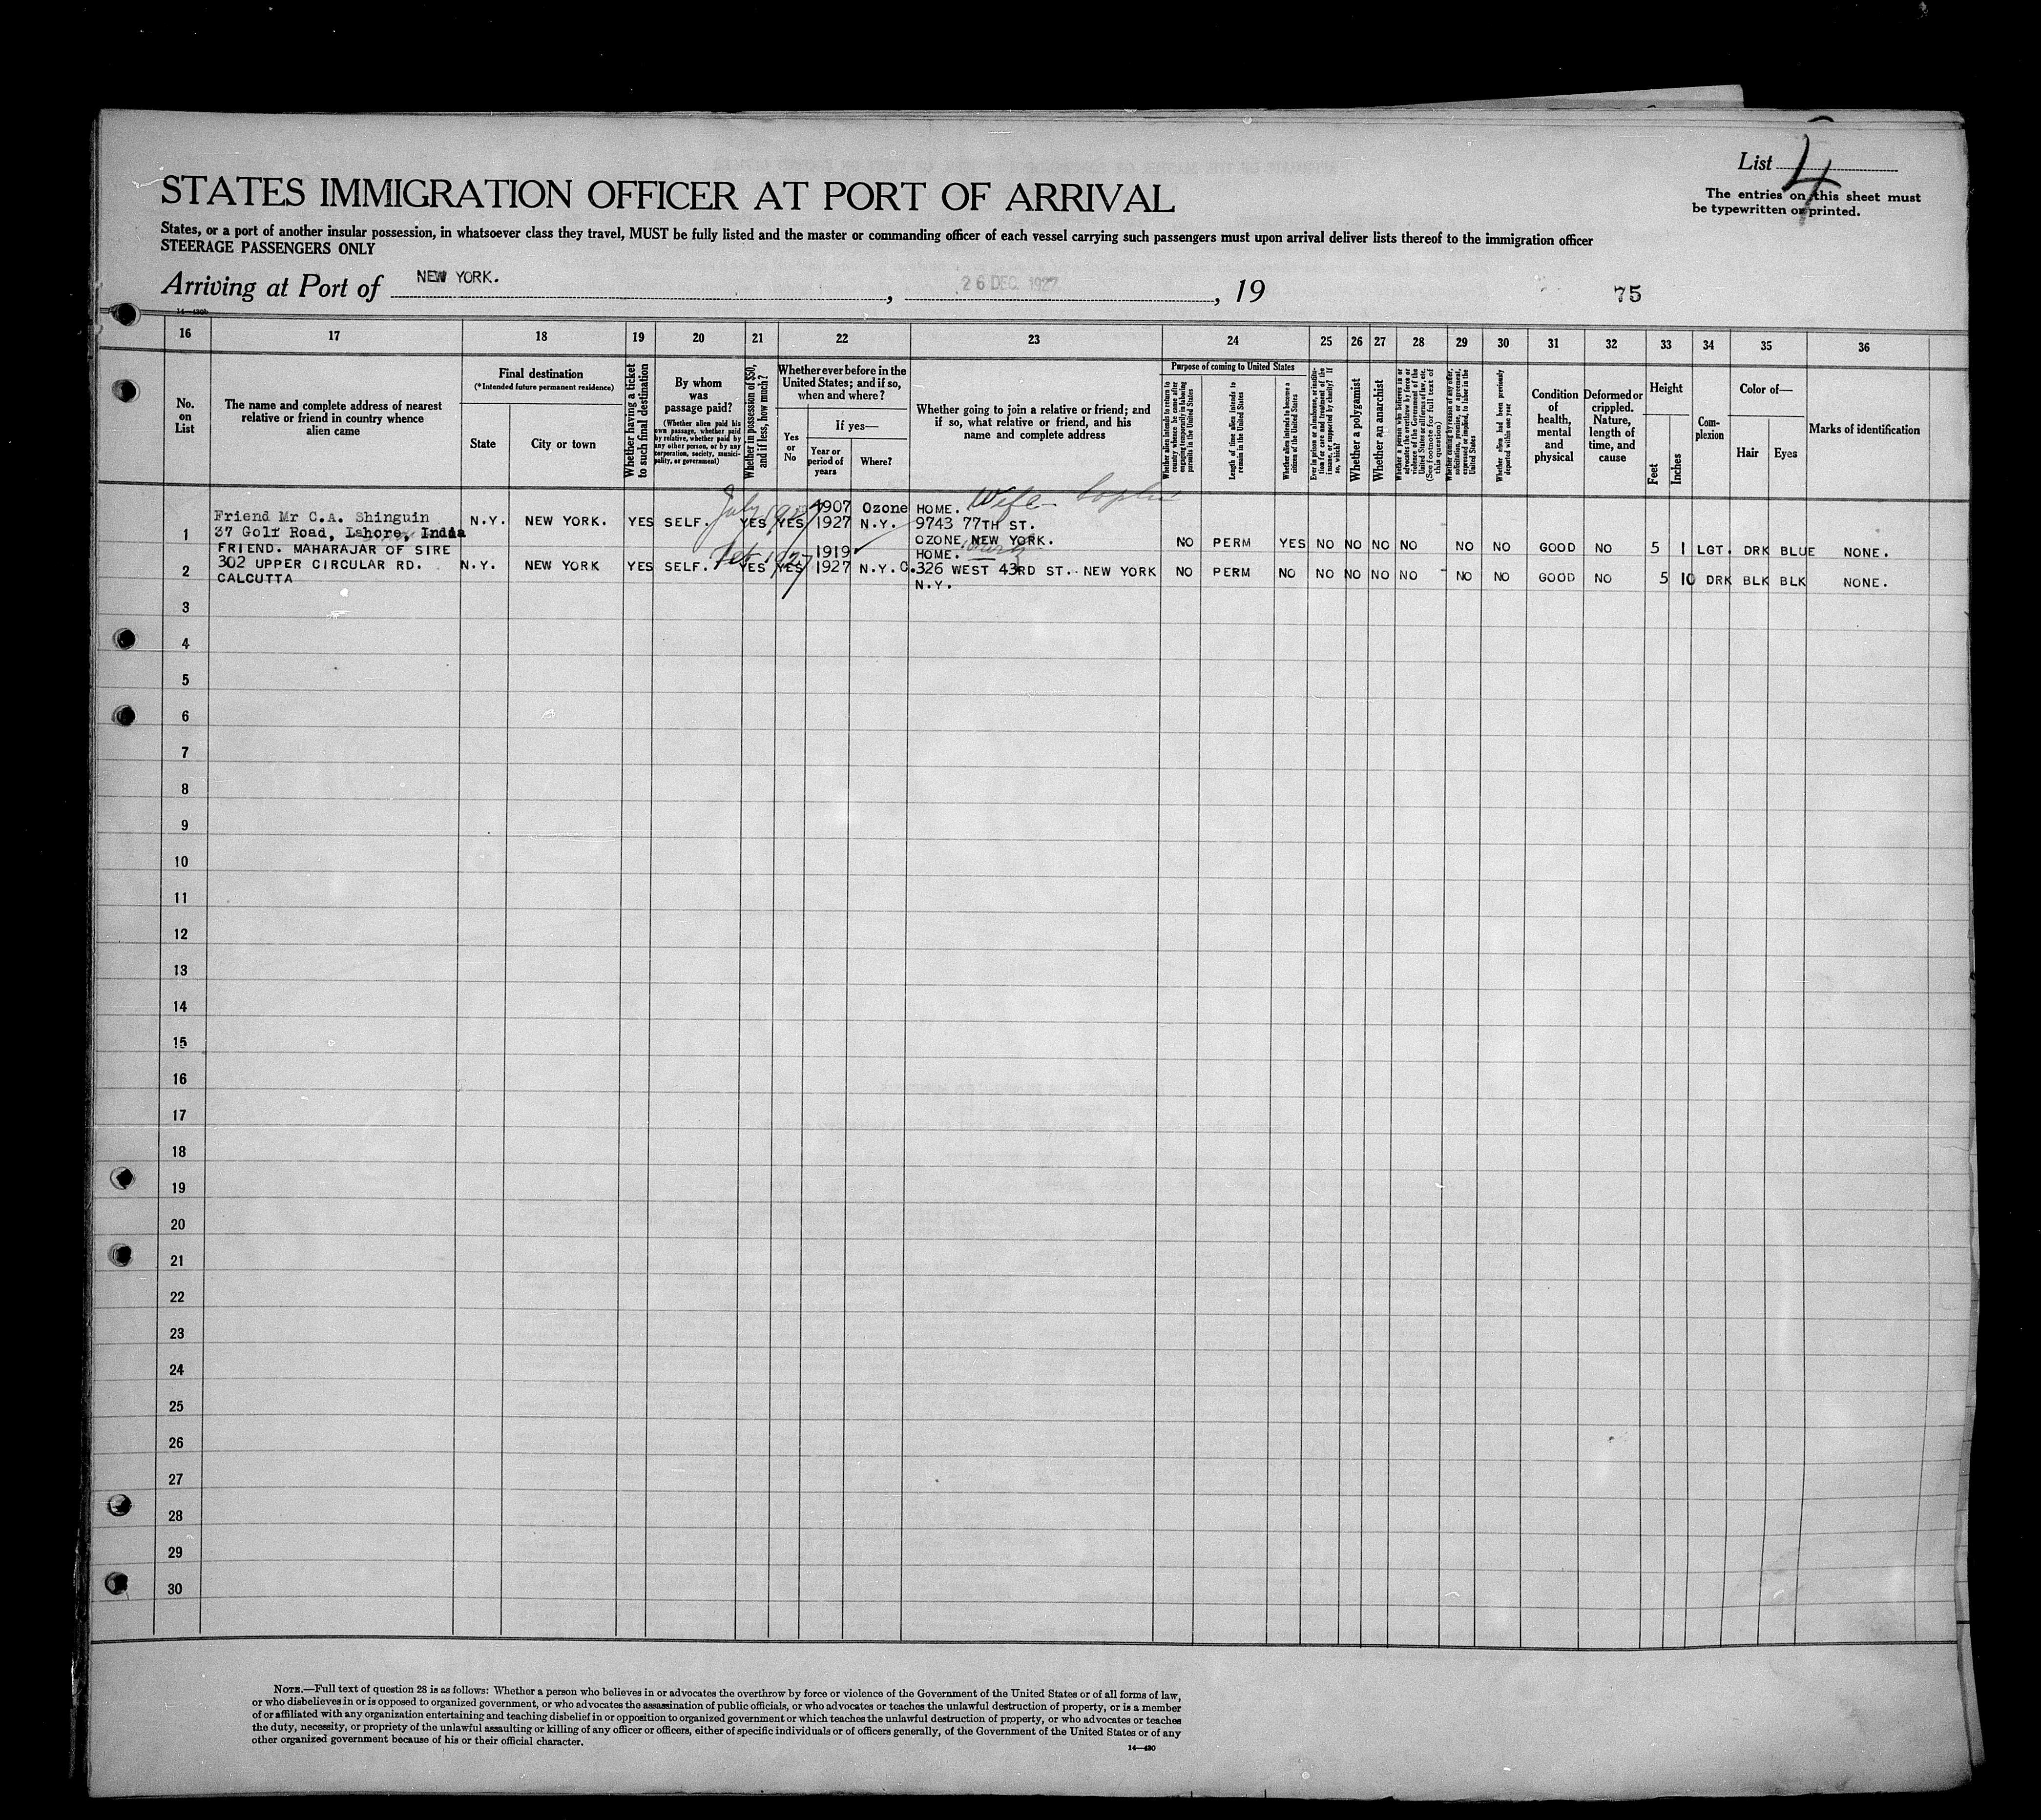 List 4
The entries on this sheet must
be typewritten or printed.
STATES IMMIGRATION OFFICER AT PORT OF ARRIVAL
States, or a port of another insular possession, in whatsoever class they travel, MUST be fully listed and the master or commanding officer of each vessel carrying such passengers must upon arrival deliver lists thereof to the immigration officer
STEERAGE PASSENGERS ONLY
Arriving at Port of NEW YORK. , 26 DEC. 1927 , 19 75
14—430b
16 17 18 19 20 21 22 23 24 25 26 27 28 29 30 31 32 33 34 35 36
No.
on
List
The name and complete address of nearest
relative or friend in country whence
alien came
Final destination
(*Intended future permanent residence)
State
City or town
Whether having a ticket
to such final destination
By whom
was
passage paid?
(Whether alien paid his
own passage, whether paid
by relative, whether paid by
any other person, or by any
corporation, society, munici-
pality, or government)
Whether in possession of $50,
and if less, how much?
Whether ever before in the
United States; and if so,
when and where?
Yes
or
No
If yes—
Year or
period of
years
Where?
Whether going to join a relative or friend; and
if so, what relative or friend, and his
name and complete address
Purpose of coming to United States
Whether alien intends to return to
country whence he came after
engaging temporarily in laboring
pursuits in the United States
Length of time alien intends to
remain in the United States
Whether alien intends to become a
citizen of the United States
Ever in prison or almshouse, or institu-
tion for care and treatment of the
insane, or supported by charity? If
so, which?
Whether a polygamist
Whether an anarchist
Whether a person who believes in or
advocates the overthrow by force or
violence of the Government of the
United States or all forms of law, etc.
(See footnote for full text of
this question)
Whether coming by reason of any offer,
solicitation, promise, or agreement,
expressed or implied, to labor in the
United States
Whether alien had been previously
deported within one year
Condition
of
health,
mental
and
physical
Deformed or
crippled.
Nature,
length of
time, and
cause
Height
Feet
Inches
Com-
plexion
Color of—
Hair
Eyes
Marks of identification
1 Friend Mr C.A. Shinguin
37 Golf Road, Lahore, India
N.Y. NEW YORK. YES SELF. YES YES 1907 1927 Ozone N.Y.
July 1927
HOME. Wife
9743 77TH ST.
OZONE NEW YORK.
NO PERM YES NO NO NO NO NO NO GOOD NO 5 1 LGT. DRK BLUE NONE.
2 FRIEND. MAHARAJAR OF SIRE
302 UPPER CIRCULAR RD.
CALCUTTA
N.Y. NEW YORK YES SELF. YES YES 1919 1927 N.Y.C.
1927
HOME.
326 WEST 43RD ST. NEW YORK
N.Y.
NO PERM NO NO NO NO NO NO NO GOOD NO 5 10 DRK BLK BLK NONE.
3
4
5
6
7
8
9
10
11
12
13
14
15
16
17
18
19
20
21
22
23
24
25
26
27
28
29
30
NOTE.—Full text of question 28 is as follows: Whether a person who believes in or advocates the overthrow by force or violence of the Government of the United States or of all forms of law,
or who disbelieves in or is opposed to organized government, or who advocates the assassination of public officials, or who advocates or teaches the unlawful destruction of property, or is a member
of or affiliated with any organization entertaining and teaching disbelief in or opposition to organized government or which teaches the unlawful destruction of property, or who advocates or teaches
the duty, necessity, or propriety of the unlawful assaulting or killing of any officer or officers, either of specific individuals or of officers generally, of the Government of the United States or of any
other organized government because of his or their official character.
14—430